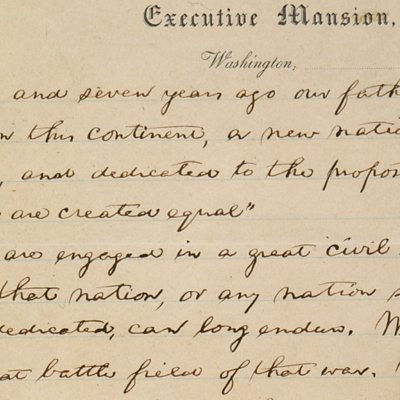 Executive Mansion,
Washington,
and seven years ago our fath
this continent, a new natio
, and dedicated to the propos
are created equal"
are engaged in a great civil
that nation, or any nation s
dedicated, can long endure. W
at battle field of that war.